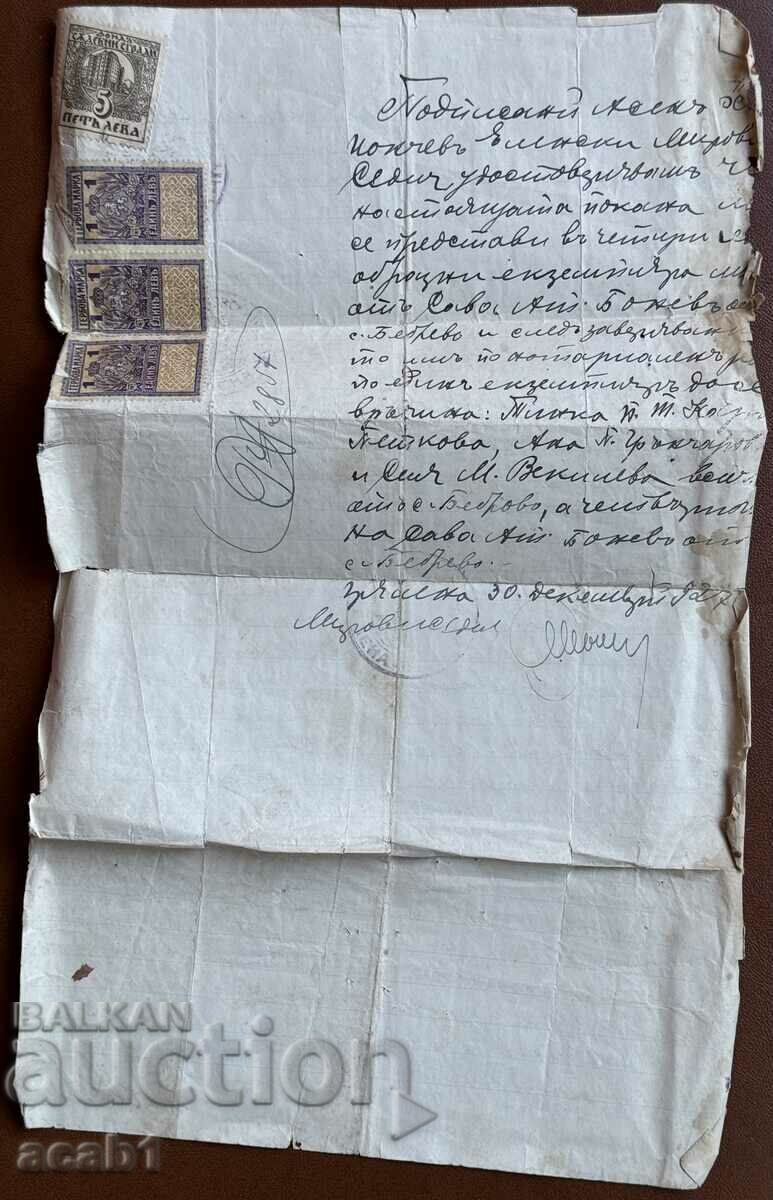 ФОНД
СѪДЕБНИ СГРАДИ
5
ПЕТЬ ЛЕВА
ГЕРБОВА МАРКА
1 1
ЕДИНЪ ЛЕВЪ
ГЕРБОВА МАРКА
1 1
ЕДИНЪ ЛЕВЪ
ГЕРБОВА МАРКА
1 1
ЕДИНЪ ЛЕВЪ
2807
Подписани Асенъ
Еленски Мирови
Сѫдия удостовѣрявамъ
настоящата покана
се представи въ четири
образни екземпляра
отъ Сава Ат. Божевъ от
с. Беброво и следъ заверяване
то имъ по нотариаленъ
по единъ екземпляръ да се
врачи на: Пинка П. Т.
Петкова, Ана П. Грънчаров
и М. Векилева
отъ с. Беброво, а четвърти
на Сава Ат. Божевъ отъ
с. Беброво.
гр. Елена 30. декемврий 927
Мирови Сѫдия
BALKAN
auction
acab1